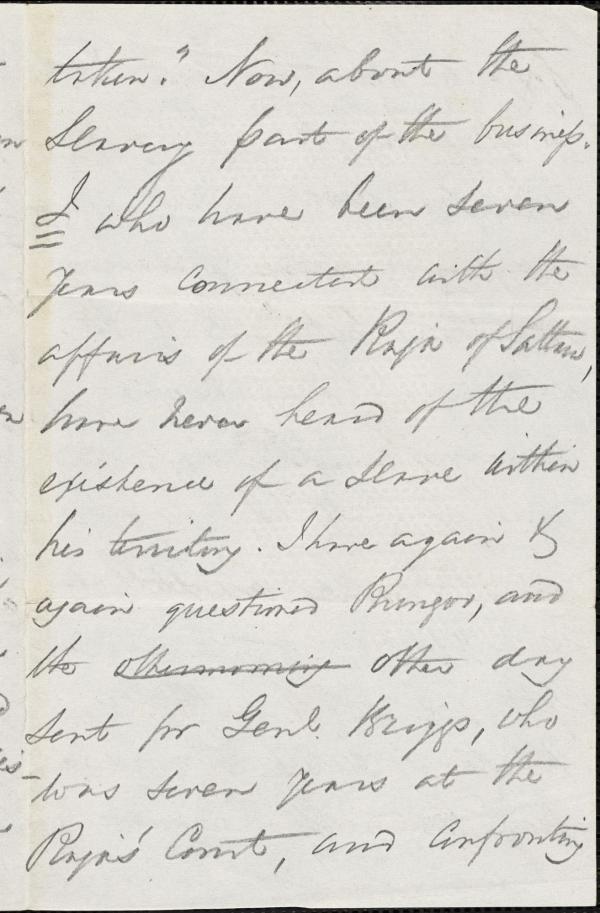 taken." Now, about the
Slavery part of the business.
I who have been seven
years connected with the
affairs of the Raja of Sattara,
have never heard of the
existence of a Slave within
his territory. I have again &
again questioned Rungoo, and
the other morning other day
sent for Genl. Briggs, who
was seven years at the
Raja's Court, and confronting